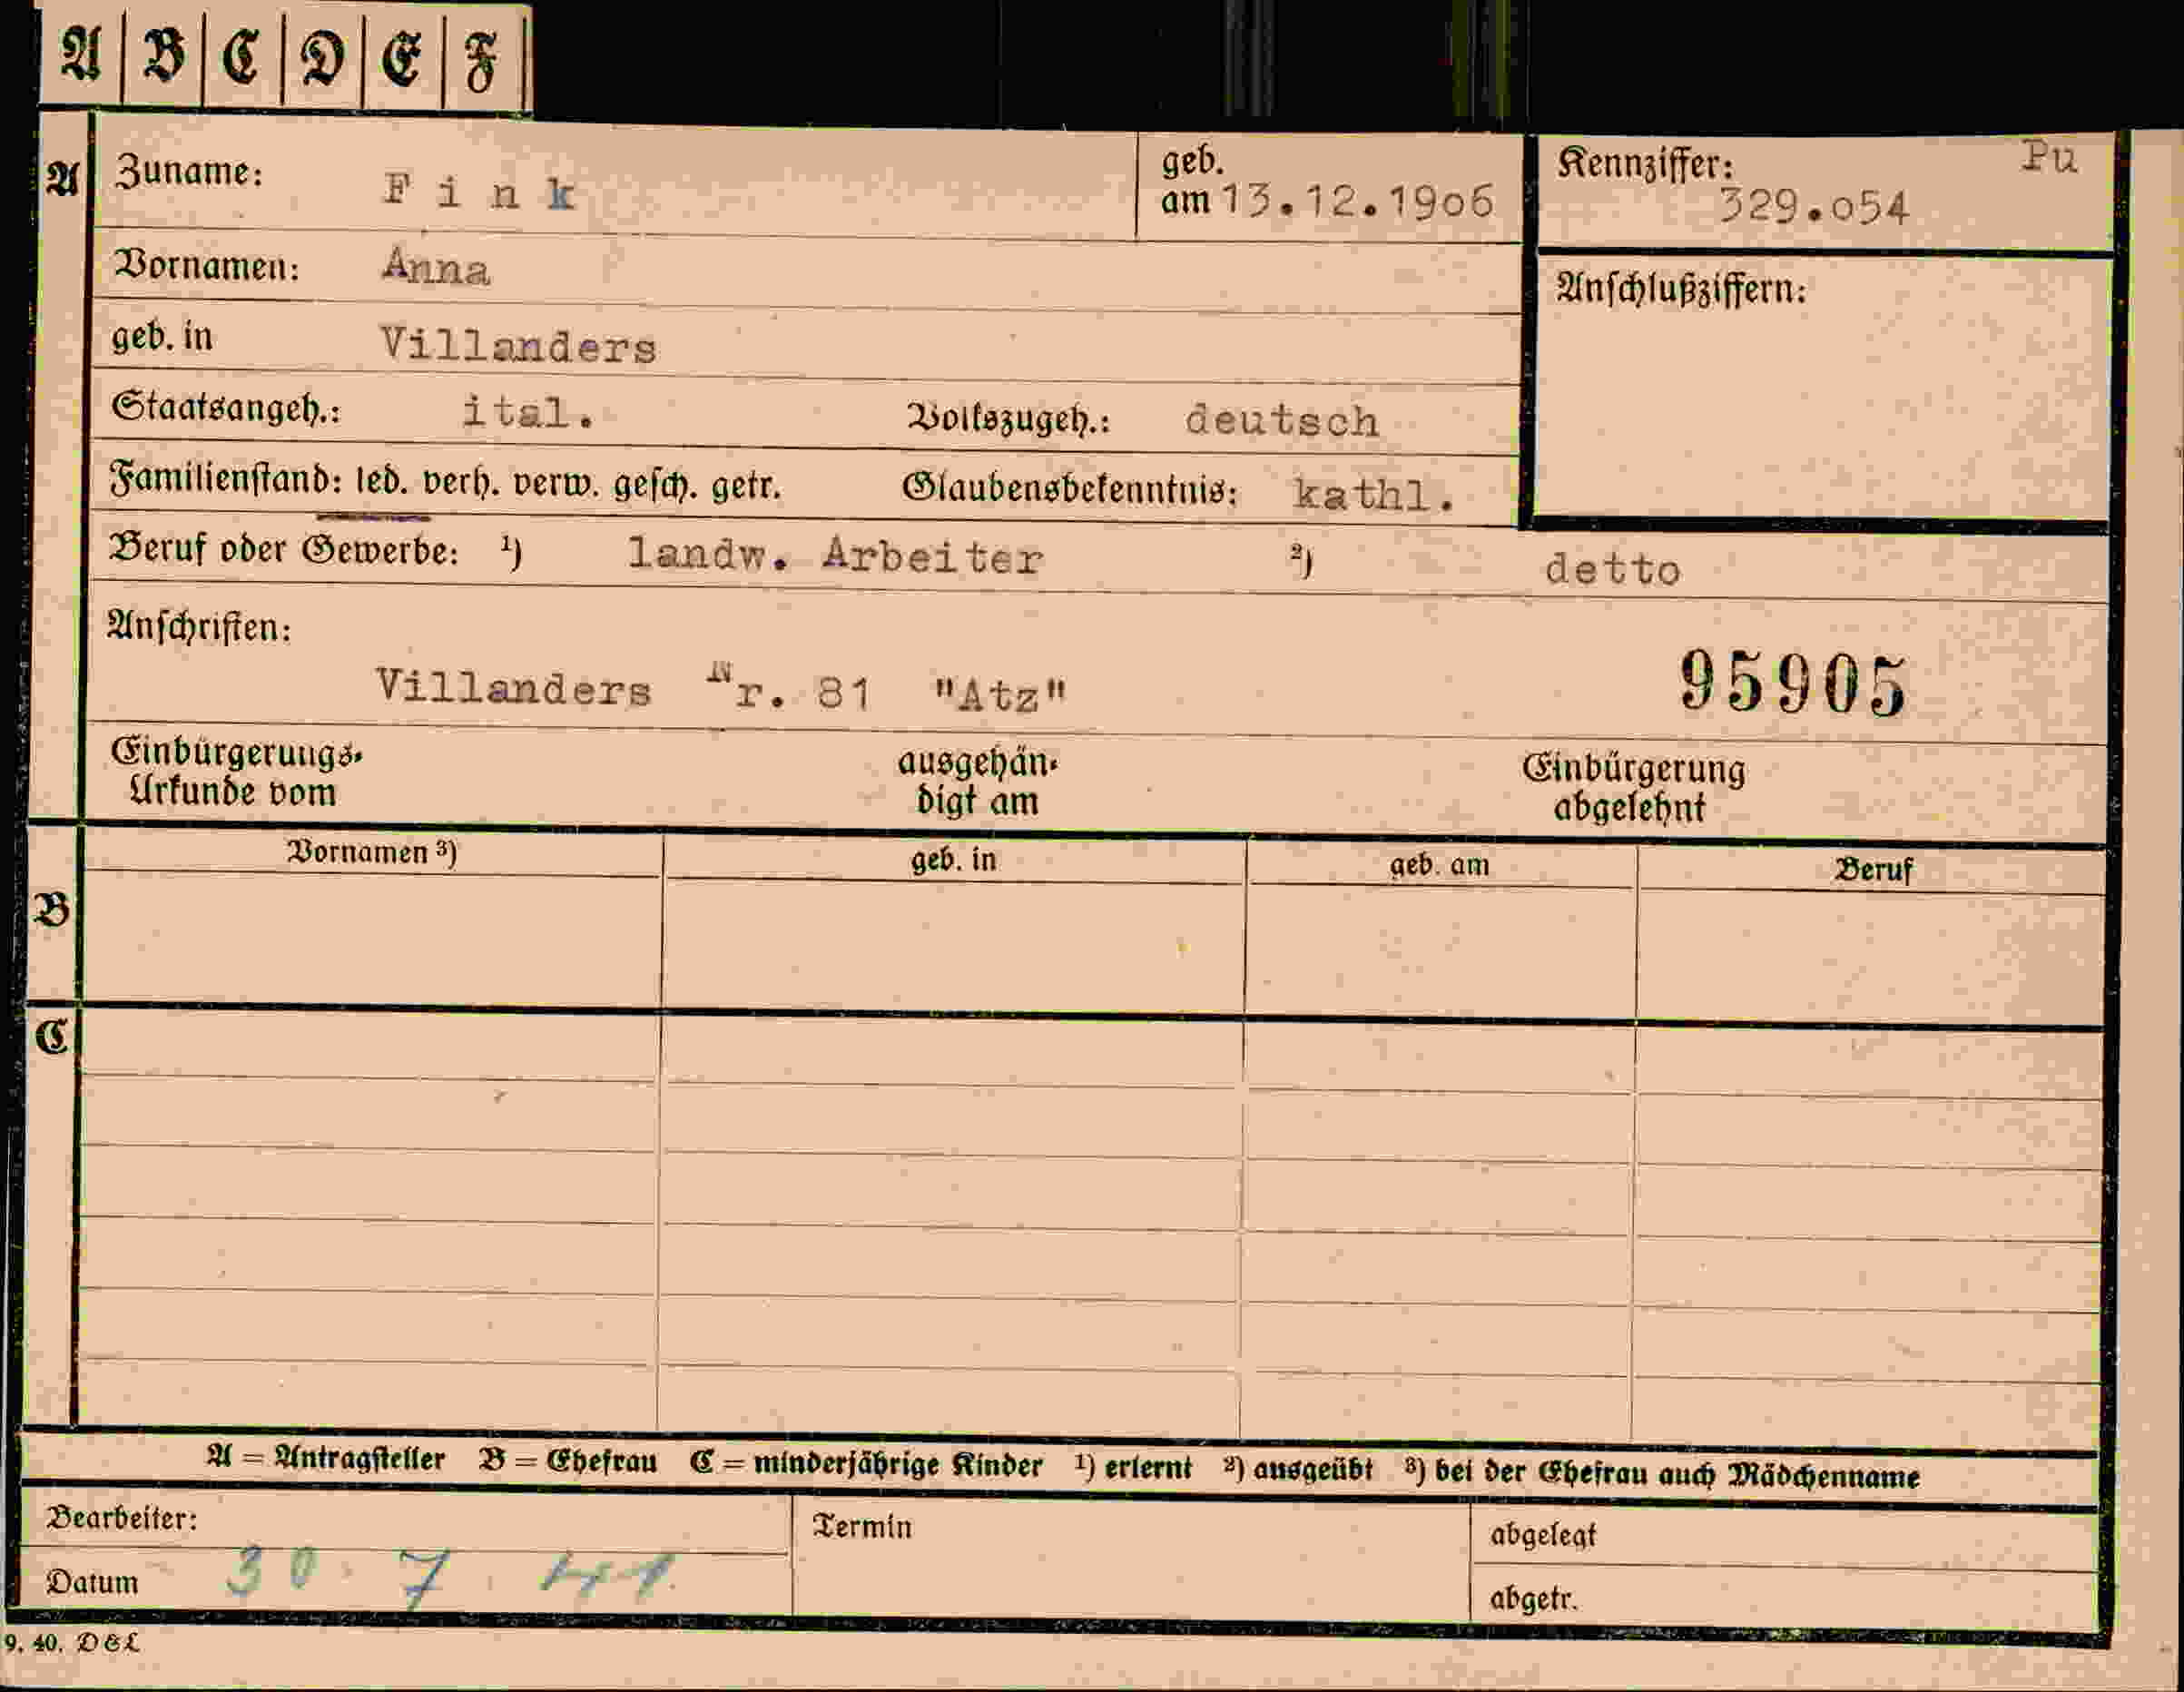 A B C D E F
A Zuname: Fink geb. am 13.12.1906 Kennziffer: Pu 329.054
Vornamen: Anna Anschlußziffern:
geb. in Villanders
Staatsangeh.: ital. Volkszugeh.: deutsch
Familienstand: led. verh. verw. gesch. getr. Glaubensbekenntnis: kathl.
Beruf oder Gewerbe: ¹) landw. Arbeiter ²) detto
Anschriften:
Villanders Nr. 81 "Atz" 95905
Einbürgerungs- ausgehän- Einbürgerung
Urkunde vom digt am abgelehnt
Vornamen ³) geb. in geb. am Beruf
B
C
A = Antragsteller B = Ehefrau C = minderjährige Kinder ¹) erlernt ²) ausgeübt ³) bei der Ehefrau auch Mädchenname
Bearbeiter: Termin abgelegt
Datum 30. 7. 41. abgetr.
9. 40. D&L